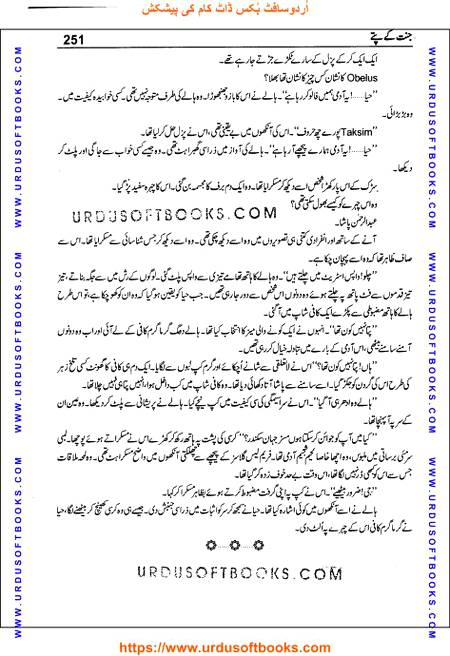 اُردو سافٹ بُکس ڈاٹ کام کی پیشکش
جنت کے پتے
251
ایک ایک کر کے پزل کے سارے ٹکڑے جڑتے جا رہے تھے۔
Obelus کا نشان کس چیز کا نشان تھا بھلا؟
’’حیا......! یہ آدمی ہمیں فالو کر رہا ہے‘‘۔ ہالے نے اس کا بازو جھنجھوڑا۔ وہ ہالے کی طرف متوجہ نہیں تھی۔ کسی خوابیدہ کیفیت میں۔
وہ بڑبڑائی۔
’’Taksim پورے چھ حروف‘‘۔ اس کی آنکھوں میں بے یقینی تھی، اس نے پزل حل کر لیا تھا۔
’’حیا......! یہ آدمی ہمارے پیچھے آ رہا ہے‘‘۔ ہالے کی آواز میں ذرا سی گھبراہٹ تھی۔ وہ جیسے کسی خواب سے جاگی اور پلٹ کر
دیکھا۔
سڑک کے اس پار کھڑا شخص اسے دیکھ کر مسکرایا تھا۔ وہ ایک دم برف کا مجسمہ بن گئی۔ اس کا چہرہ سفید پڑ گیا۔
وہ اس چہرے کو کیسے بھول سکتی تھی؟
URDUSOFTBOOKS.COM
عبدالرحمٰن پاشا۔
آنے کے ساتھ اور انفرادی کتنی ہی تصویروں میں وہ اسے دیکھ چکی تھی۔ وہ اسے دیکھ کر جس شناسائی سے مسکرایا تھا۔ اس سے
صاف ظاہر تھا کہ وہ اسے پہچان چکا ہے۔
’’چلو! واپس اسٹریٹ میں چلتے ہیں‘‘۔ وہ ہالے کا ہاتھ تھامے تیزی سے واپس پلٹ گئی۔ لوگوں کے رش میں سے جگہ بناتے، تیز
تیز قدموں سے فٹ پاتھ پہ چلتے ہوئے وہ دونوں اس شخص سے دور جا رہی تھیں۔ جب حیا کو یقین ہو گیا کہ وہ ان کو کھو چکا ہے، تو اس طرح
ہالے کا ہاتھ مضبوطی سے پکڑے ایک کافی شاپ میں آ گئی۔
’’پتا نہیں کون تھا‘‘۔ انہوں نے ایک کونے والی میز کا انتخاب کیا تھا۔ ہالے دو مگ گرما گرم کافی کے لے آئی اور اب وہ دونوں
آمنے سامنے بیٹھی، اس آدمی کے بارے میں تبادلہ خیال کر رہی تھیں۔
’’ہاں! پتا نہیں کون تھا؟‘‘ اس نے لاتعلقی سے شانے اُچکائے اور گرم کپ لبوں سے لگایا۔ ایک دم ہی کافی کا گھونٹ کسی تلخ زہر
کی طرح اس کی گردن کو جکڑ گیا۔ اسے سامنے سے پاشا آتا دکھائی دیا تھا۔ وہ کافی شاپ میں کب داخل ہوا، انہیں پتا ہی نہیں چلا تھا۔
’’ہالے وہ ادھر ہی آ گیا‘‘۔ اس نے سراسیمگی کی سی کیفیت میں کپ نیچے کیا۔ ہالے نے پریشانی سے پلٹ کر دیکھا۔ وہ عین ان
کے سر پہ آ پہنچا تھا۔
’’کیا میں آپ کو جوائن کر سکتا ہوں مسز جہان سکندر؟‘‘ کرسی کی پشت پہ ہاتھ رکھ کر کھڑے اس نے مسکراتے ہوئے پوچھا۔ لمبی
سرمئی برساتی میں ملبوس، وہ اچھا خاصا لحیم شحیم آدمی تھا۔ فریم لیس گلاسز کے پیچھے سے جھلکتی آنکھوں میں واضح مسکراہٹ تھی۔ وہ لمحہ ملاقات
جس سے اس کو کبھی ڈر نہیں لگا تھا، اس وقت بے حد خوف زدہ کر گیا تھا۔
’’جی! ضرور بیٹھیے‘‘۔ اس نے کپ پہ اپنی گرفت مضبوط کرتے ہوئے بظاہر مسکرا کر کہا۔
ہالے نے اسے آنکھوں میں کوئی اشارہ کیا تھا۔ حیا نے سمجھ کر سر کو اثبات میں ذرا سی جنبش دی۔ جیسے ہی وہ کرسی کھینچ کر بیٹھنے لگا، حیا
نے گرما گرم کافی اس کے چہرے پہ اُلٹ دی۔
URDUSOFTBOOKS.COM
WWW.URDUSOFTBOOKS.COM
WWW.URDUSOFTBOOKS.COM
WWW.URDUSOFTBOOKS.COM
WWW.URDUSOFTBOOKS.COM
https://www.urdusoftbooks.com